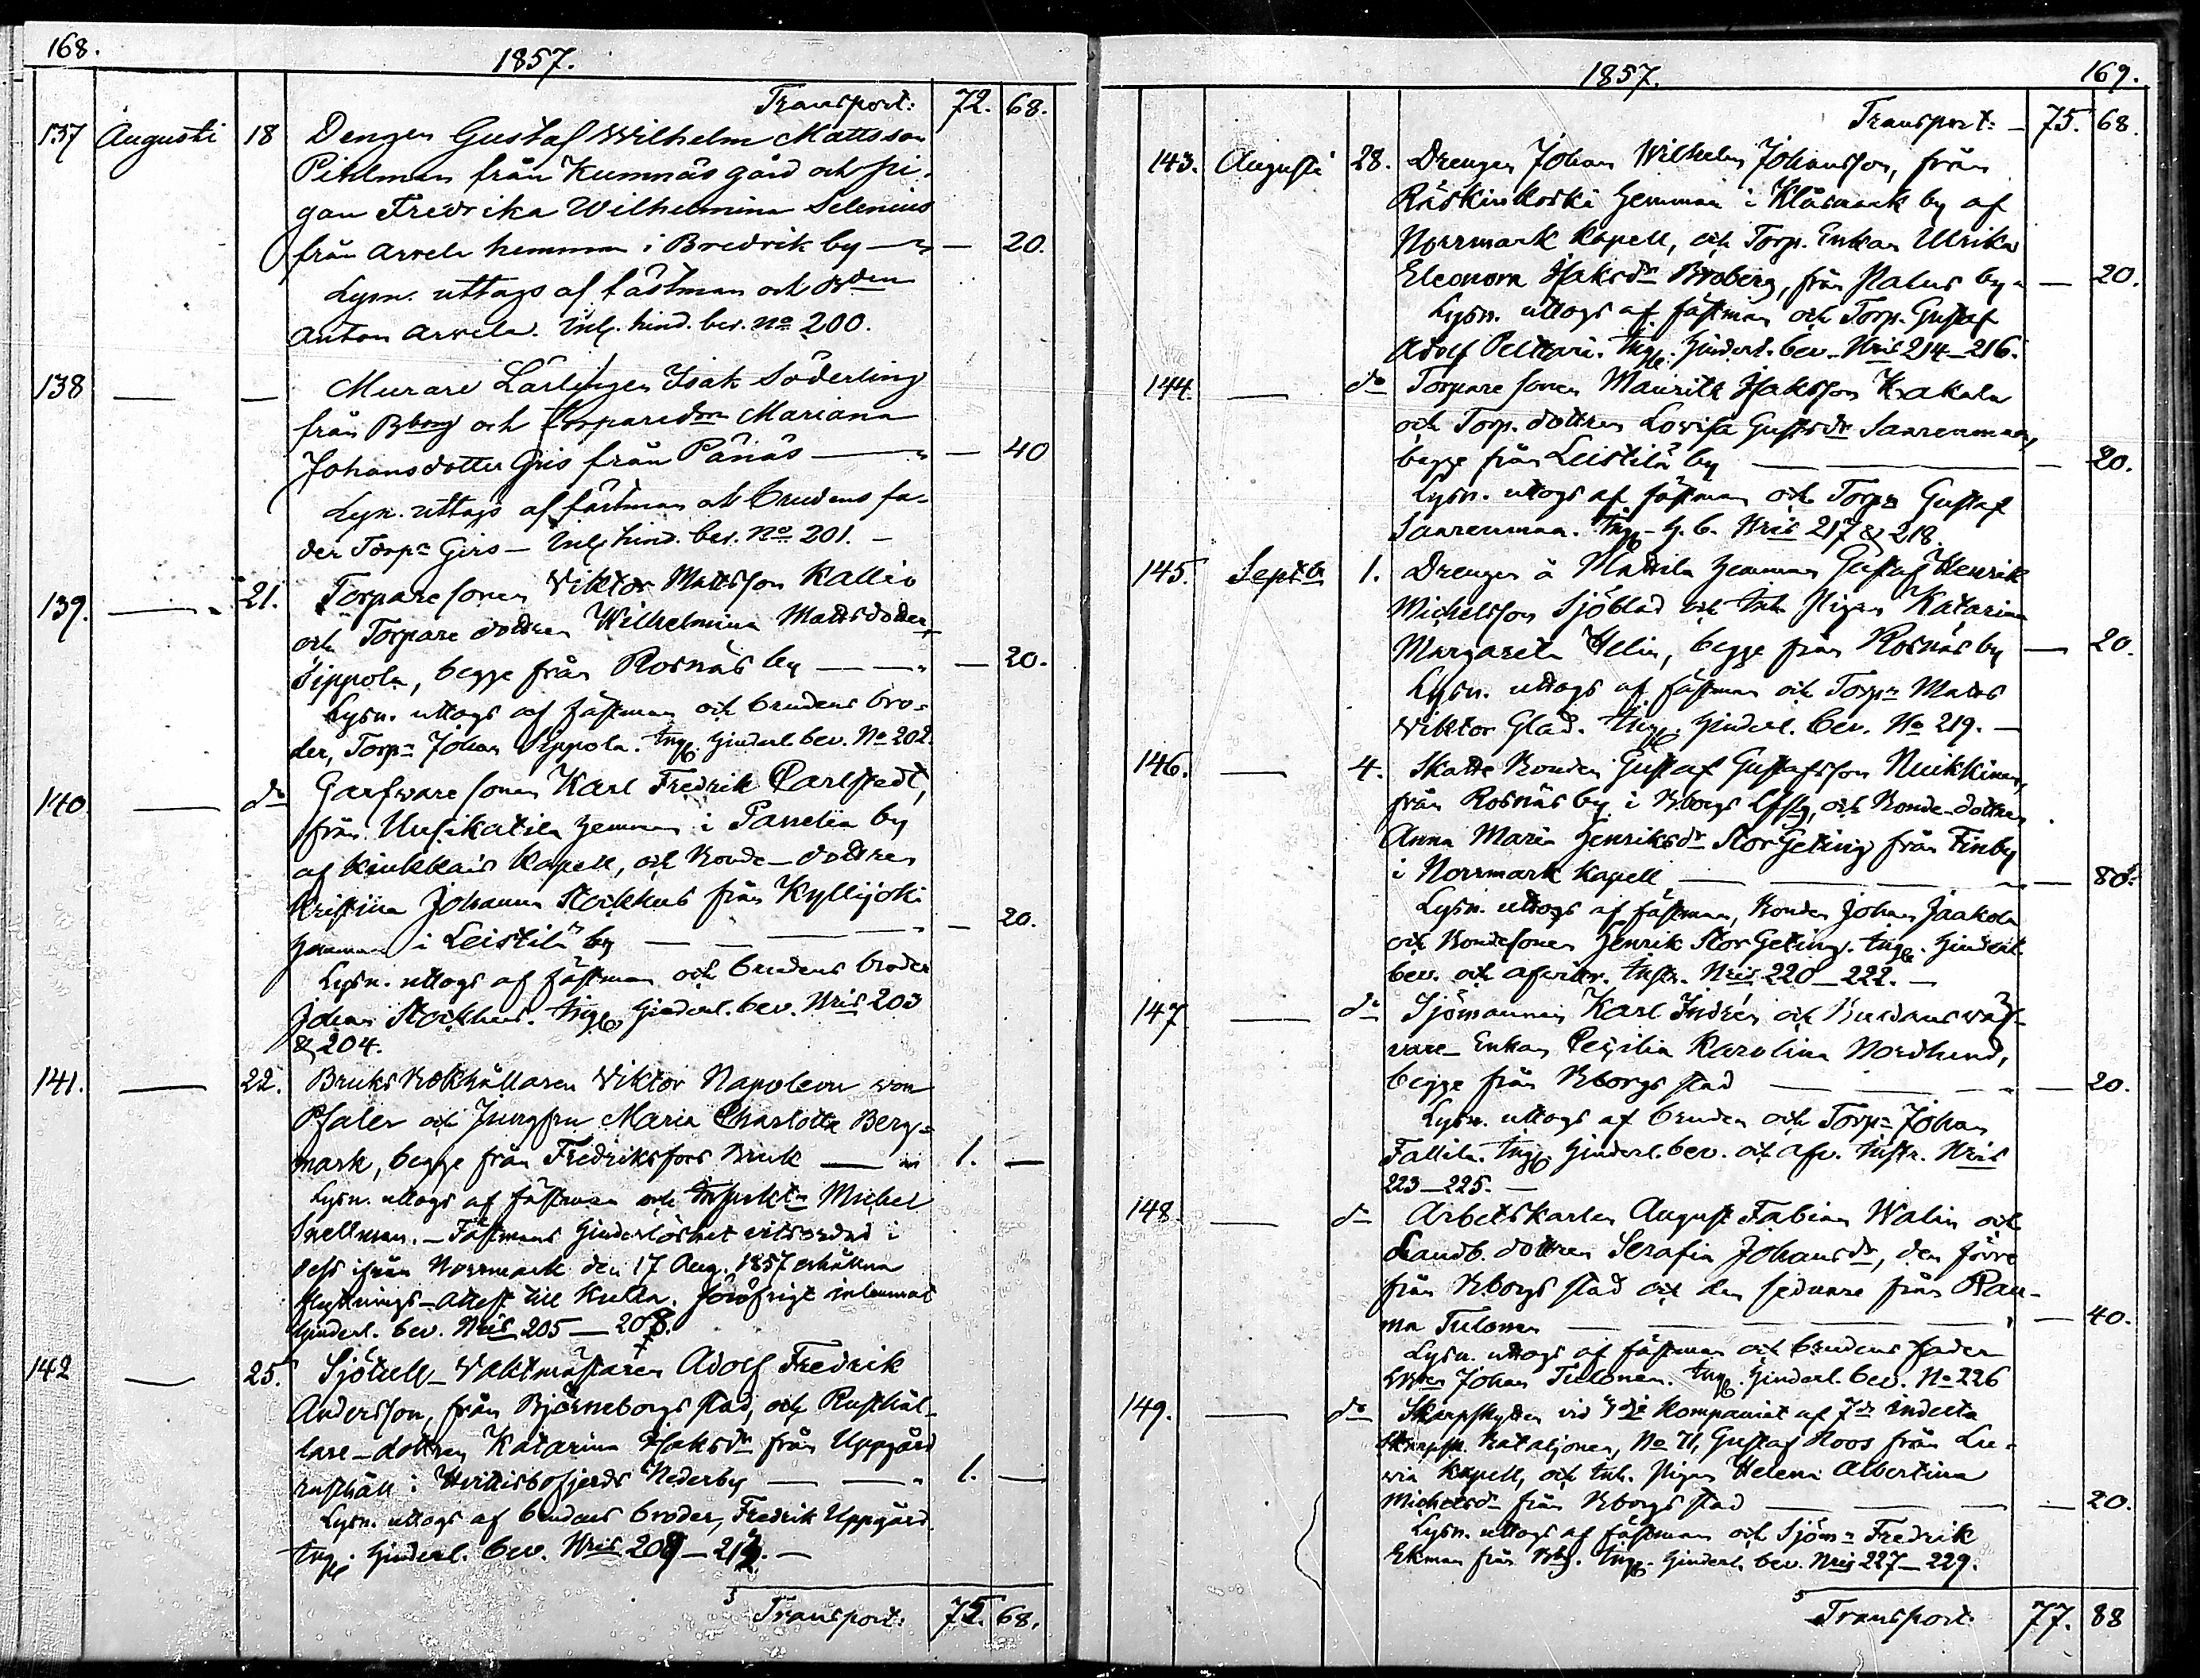 168.
1857.
Transport: 72. 68.
137 Augusti 18 Drengen Gustaf Wilhelm Mattsson
Pihlman från Kumnäs gård och pi-
gan Fredrika Wilhelmina Selenius
från Arvela hemman i Bredvik by — — 20.
Lysn. uttogs af fästman och Bden
Anton Arvela. Inl. hind. bev. No 200.
138 — — Murare Lärlingen Isak Söderling
från Bborg och Torparedrn Mariana
Johansdotter Gris från Pånäs — — 40
Lysn. uttogs af fästman och brudens fa-
der Torpn Gris — Inl. hind. bev. No 201. —
139. — 21. Torparesonen Viktor Mattsson Kallio
och Torpare dottren Wilhelmina Mattsdotter
Sippola, begge från Rosnäs by — — 20.
Lysn. uttogs af fästman och brudens bro-
der, Torpn Johan Sippola. Ingf. Hinderl. bev. No 202.
140. — do Garfvaresonen Karl Fredrik Carlstedt,
från Uusikatila hemman i Panelia by
af Kiukkais Kapell, och Bonde-dottren
Kristina Johanna Stockhus från Kyllijoki
hemman i Leistilä by — — — 20.
Lysn. uttogs af fästman och brudens broder
Johan Stockhus. Ingf. Hinderl. bev. Nris 203
& 204.
141. — 22. Bruks Bokhållaren Viktor Napoleon von
Pfaler och Jungfru Maria Charlotta Berg=
mark, begge från Fredriksfors Bruk — 1. —
Lysn. uttogs af fästman och Inspektn Michel
Snellman. — Fästmans Hinderlöshet vitsordad i
dess ifrån Norrmark den 17 Aug. 1857 erhållna
flyttnings-attest till Kulla. Föröfrigt inlemnat
Hinderl. bev. Nris 205 — 208.
142 — 25. Sjötull-Vaktmästaren Adolf Fredrik
Andersson, från Björneborgs stad, och Rusthål-
lare-dottren Katarina Isaksdr från Uppgård
rusthåll i Hvittisbofjerds Nederby — — 1. —
Lysn. uttogs af brudens broder, Fredrik Uppgård.
Ingf. Hinderl. bev. Nris 209 — 213. —
Transport: 75. 68.
1857. 169.
Transport: — 75. 68.
143. Augusti 28. Drengen Johan Wilhelm Johansson, från
Räskinkoski Hemman i Klåsmark by af
Norrmark Kapell, och Torp. Enkan Ulrika
Eleonora Isaksdr Broberg, från Nakus by — 20.
Lysn. uttogs af fästman och Torp. Gustaf
Adolf Pelttari. Ingf. Hinderl. bev. Nris 214 — 216.
144. — do Torpare sonen Mauritz Isaksson Kakala
och Torp. dottren Lovisa Gustsdr Saarenmaa,
begge från Leistilä by — — 20.
Lysn. uttogs af fästman och Torpn Gustaf
Saarenmaa. Ingf. H. b. Nris 217 & 218.
145. Septbr 1. Drengen å Mattila hemman Gustaf Henrik
Michelsson Sjöblad och Inh. Pigan Katarina
Margareta Helin, begge från Rosnäs by — 20.
Lysn. uttogs af fästman och Torpn Matts
Wiktor Glad. Ingf. Hinderl. bev. No 219. —
146. — 4. Skatte Bonden Gustaf Gustafsson Nuikkinen,
från Rosnäs by i Bborgs Lfsg, och Bonde-dottren
Anna Maria Henriksdr StorGeting från Finby
i Norrmark Kapell — — — 80.
Lysn. uttogs af fästman, Bonden Johan Jaakola
och Bondesonen Henrik StorGeting. Ingf. Hinderl.
bev. och afvittr. Instr. Nris 220 — 222. —
147 — do Sjömannen Karl Indrén och
vare-Enkan Cecilia Karolina Nordlund,
begge från Bborgs stad — — 20.
Lysn. uttogs af bruden och Torpn Johan
Fallila. Ingf. Hinderl. bev. och afv. Instr. Nris
223 — 225. —
148 — do Arbetskarlen August Fabian Walin och
Landb. dottren Serafia Johansdr, den förre
från Bborgs stad och den sednare från Rau-
ma Tulonen — — — 40.
Lysn. uttogs af fästman och brudens fader
Johan Tulonen. Ingf. Hinderl. bev. No 226
149. — do Skarpskytten vid 3dje Kompaniet af 7de indelta
Skarpsk. Bataljonen, No 71, Gustaf Roos från Lu-
via Kapell, och Inh. Pigan Helena Albertina
Michelsdr från Bborgs stad — — 20.
Lysn. uttogs af fästman och Sjömn Fredrik
Ekman från Bbg. Ingf. Hinderl. bev. Nris 227 — 229.
Transport. 77. 88